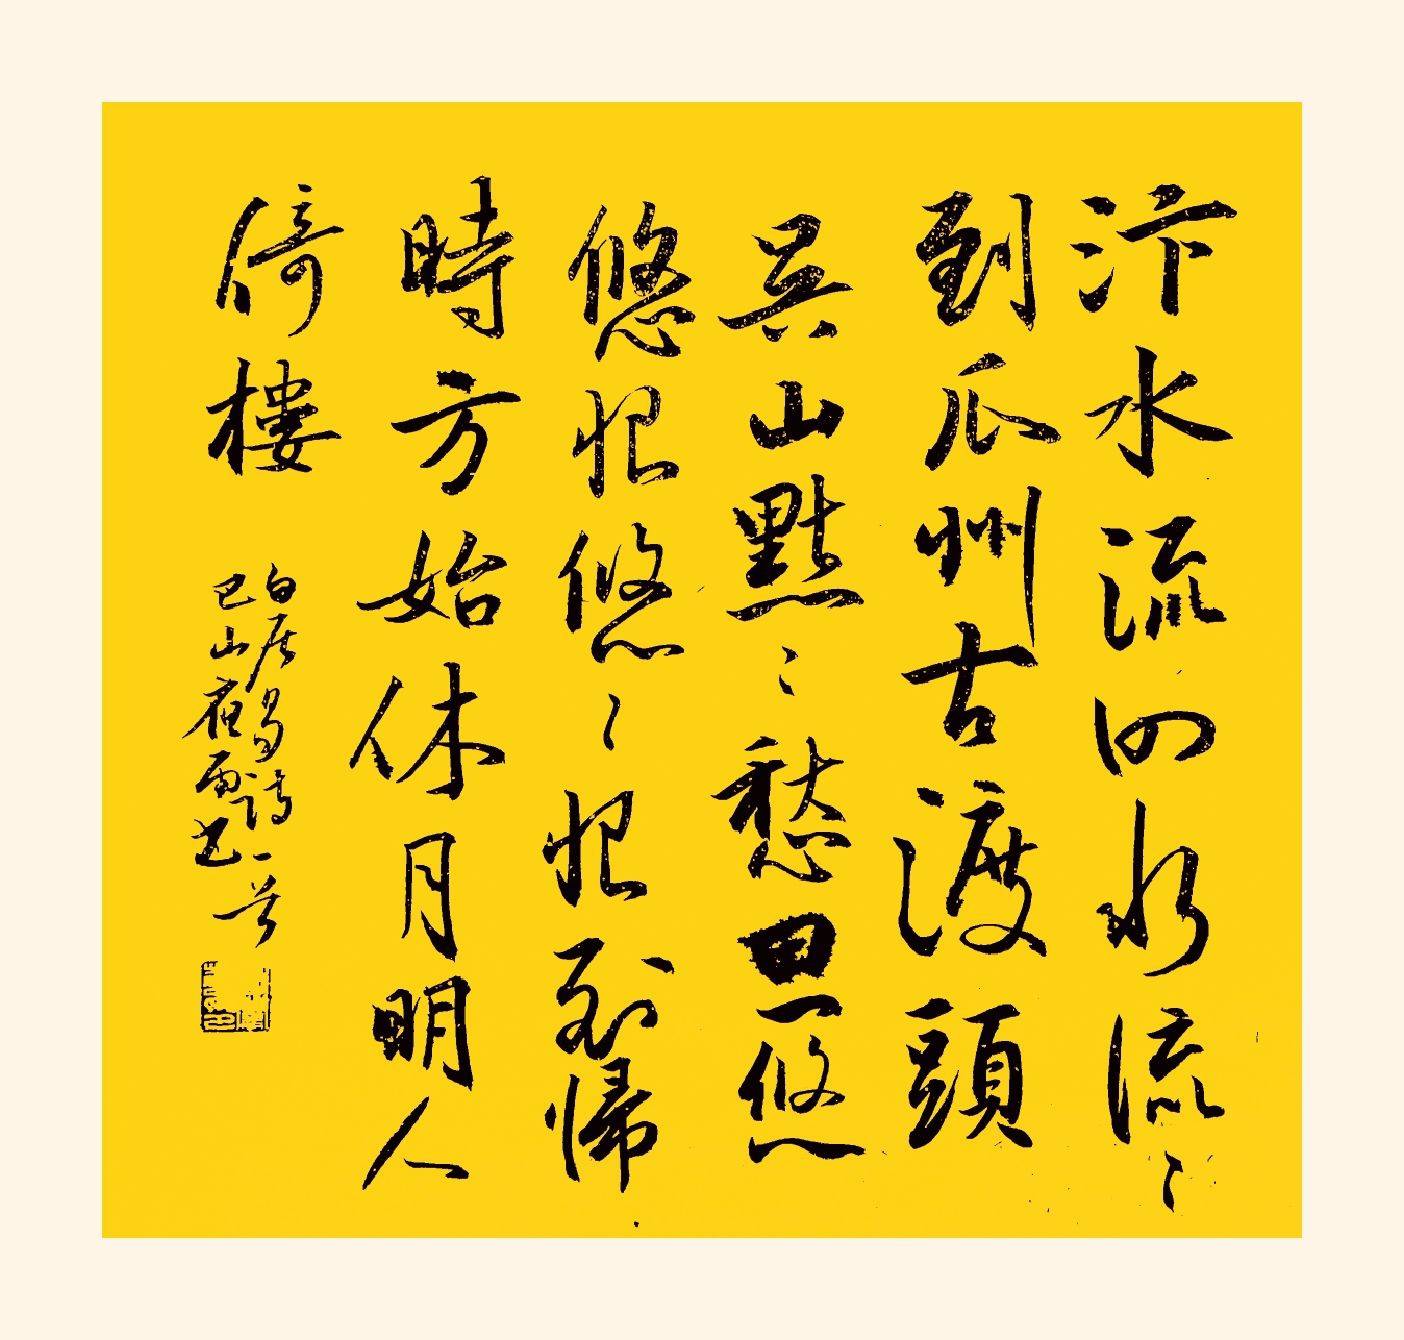 汴水流泗水流〻
到瓜州古渡頭
吳山點〻愁思悠
悠恨悠〻恨到歸
時方始休月明人
倚樓
白居易詩一首
巴山夜雨书